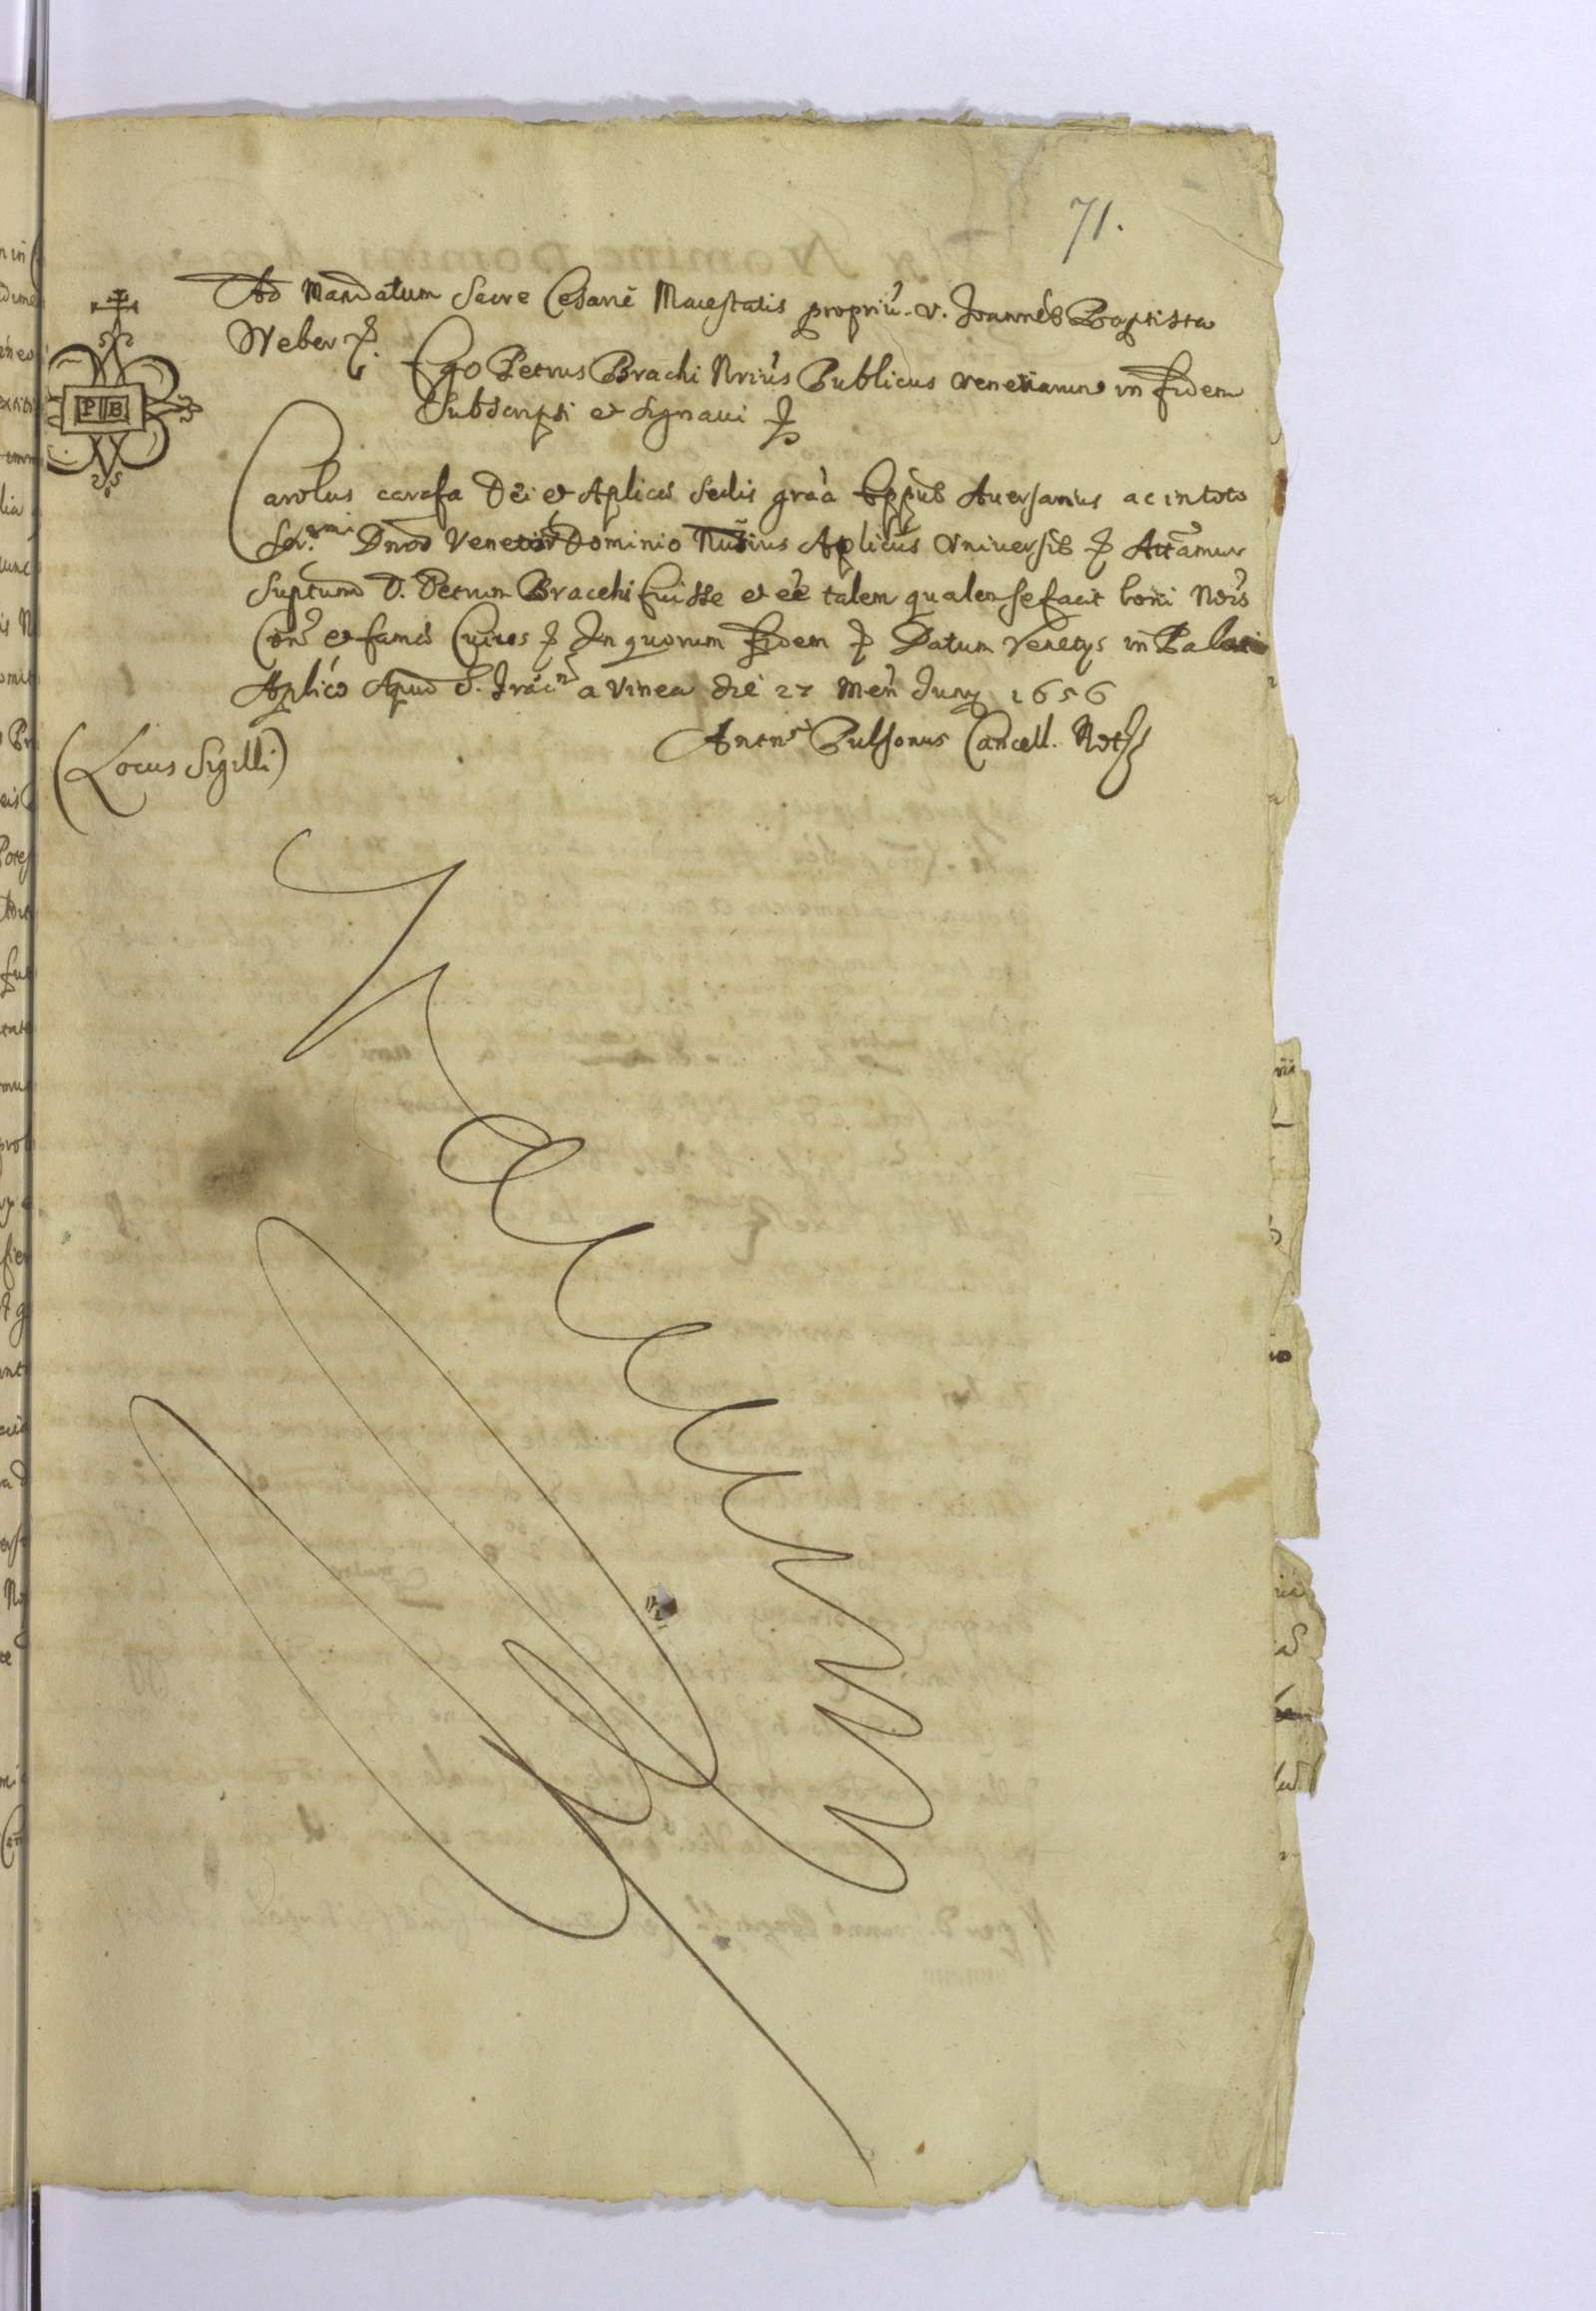 71.
Ad Mandatum Sacre Cesaree Maiestatis propriũ. V. Joannes Baptista
Weber
P B
Ego Petrus Brachi Nrius Publicus Venetiarum in fidem
Subscripsi et signaui
Carolus carafa Dei et Aplicè Sedis gr̃a Eppus Auersanus ac in toto
Ser.mi Dnõ Venetor Dominio Nũtius Aplicus Vniuersis Attãmur
Suptum D. Petrum Bracchi fuisse et eẽ talem qualem se facit boni Nõis
Conẽ et famè Cuius In quorum fidem Datum Venetys in Palatio
Aplico Apud S. a Vinea die 27 Men Juny 1656
Antns Pulsonus Cancell. Notᵘˢ
(Locus Sigilli)